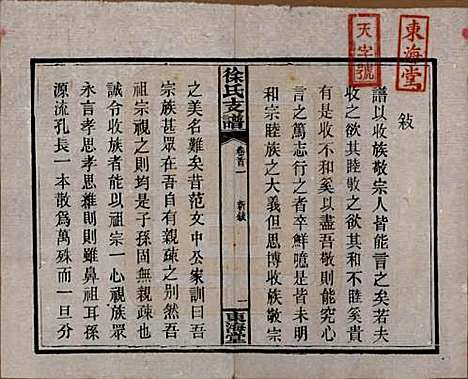 東海堂
天字號
敍
譜以收族敬宗人皆能言之若夫
收之欲其睦敬之欲其和睦奚貴
有是收和奚以盡吾敬則能究心
言之篤志行之者卒鮮噫是皆未明
和宗睦族之大義但思博收族敬宗
徐氏支譜
卷首一
新敍
一
東海堂
之美名難矣昔范文中公家訓曰吾
宗族甚眾在吾自有親疎之別然吾
祖宗視之則均是子孫固無親疎也
誠令收族者能以祖宗一心視族眾
永言孝思孝思維則則雖鼻祖耳孫
源流孔長一本散為萬殊而一旦分